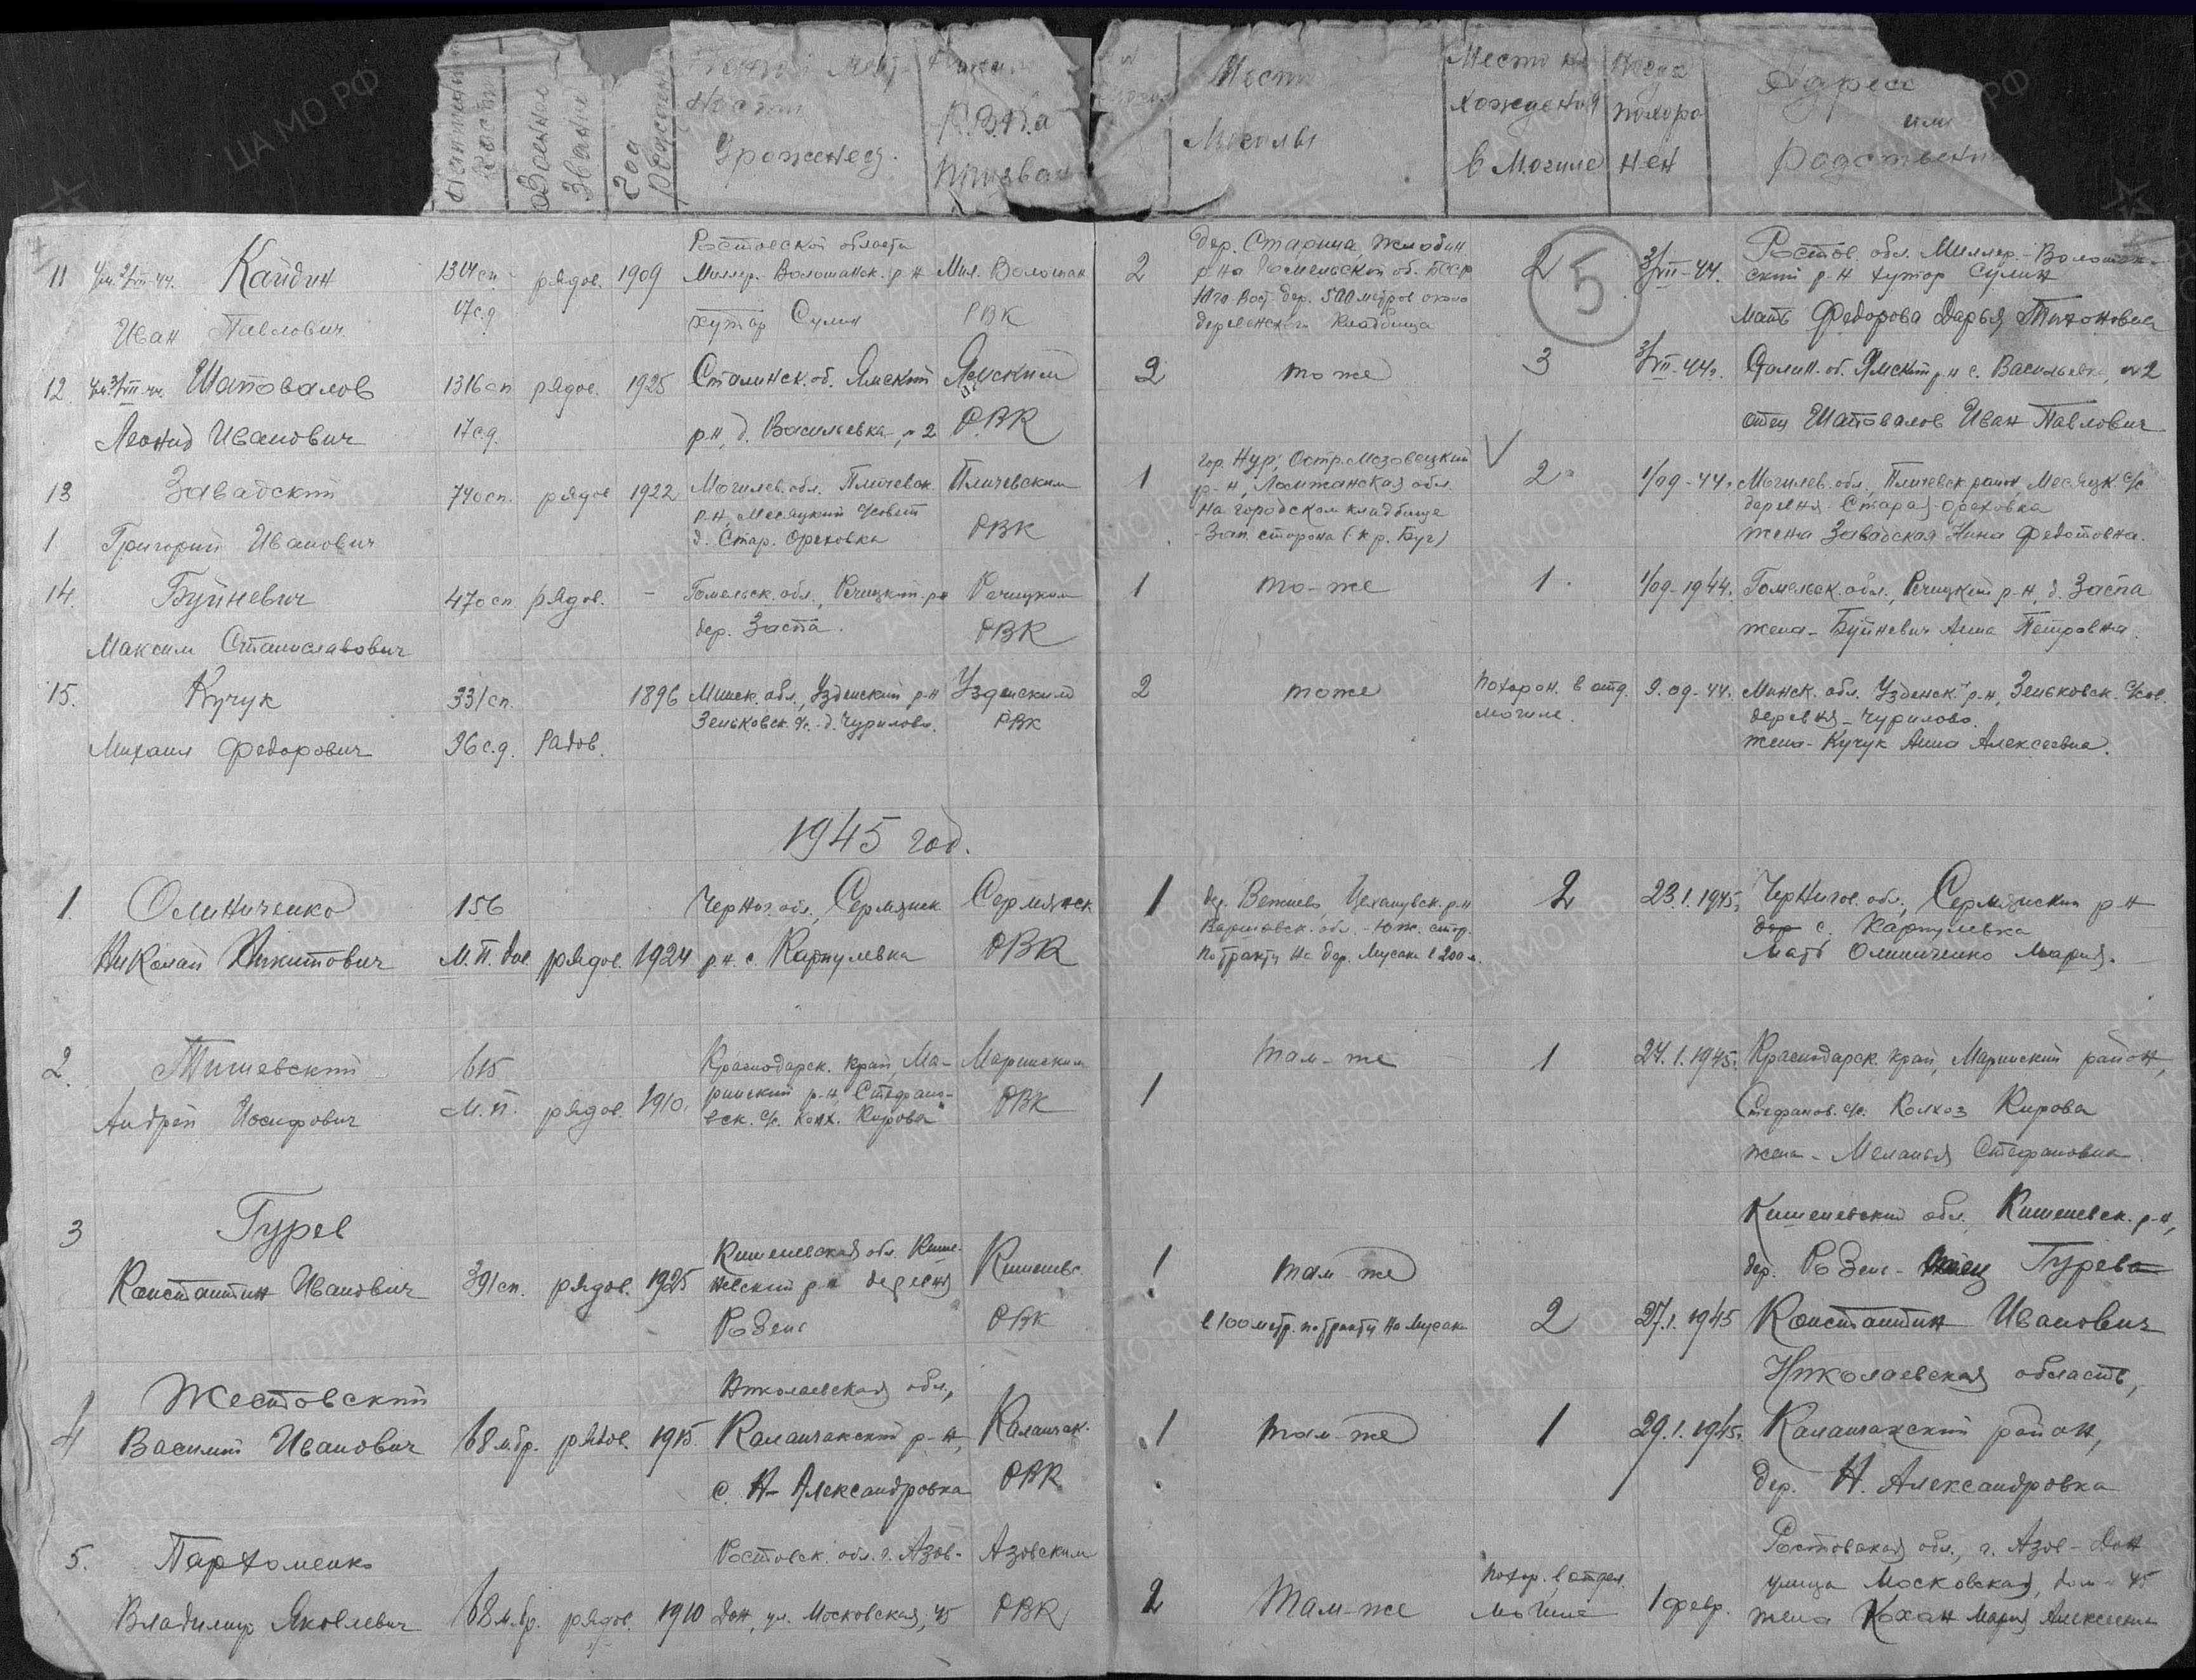 Воинское Звание
Год Рожден
Уроженец.
Р.В.К.а
Призван
Место
Могилы
Место на
хождения
в Могиле
Когда
похоро
нен
Адрес
или
Родственник
11 Ум. 2/VII-44. Кайдин 1314 сп. рядов. 1909 Ростовской области
Миллер. Волошанск. р-н Мил. Волошан
Иван Павлович 17 сд хутор Сулин РВК
2 дер. Старина Жлобин
р-на Гомельской об. БССР
Юго-Вост. дер. 500 метров около
деревенского кладбища
2 5 3/VII-44. Ростов. обл. Миллер.-Волошан-
ский р-н хутор Сулин
мать Федорова Дарья Тихоновна
12. Ум. 3/VII-44. Шаповалов 1316 сп рядов. 1925 Сталинск. об. Ямский Ямский
Леонид Иванович 17 сд. р-н, д. Васильевка, №2 РВК
2 то же 3 3/VII-44г. Сталин. об. Ямский р-н с. Васильевка, №2
отец Шаповалов Иван Павлович
13 Завадский 740 сп. рядов 1922 Могилев. обл. Пличевск. Пличевским
р-н, Месяцкий с/совет
1 Григорий Иванович д. Стар. Ореховка РВК
1 гор. Нур, Остр. Мозовецкий
р-н, Ломжанская обл.
на городском кладбище
-Зап. сторона (к р. Буг)
2 1/09-44. Могилев. обл, Пличевск район, Месяцк. с/с
деревня Старая-Ореховка
жена Завадская Нина Федотовна.
14. Буйневич 47 осп рядов. - Гомельск. обл., Речицкий р-н Речицким
Максим Станиславович дер. Заспа. РВК
1 то-же 1. 1/09-1944. Гомельск. обл., Речицкий р-н, д. Заспа
жена - Буйневич Анна Петровна.
15. Кучук 331 сп. 1896 Минск. обл., Узденский р-н Узденским
Зеньковск. с/с. д. Чурилово. РВК
Михаил Федорович 96 с.д. Рядов.
2 тоже похорон. в отд.
могиле. 9.09-44. Минск. обл. Узденск. р-н, Зеньковск. с/сов.
деревня - Чурилово.
жена - Кучук Анна Алексеевна.
1945 год.
1. Олиниченко 156 Черног. обл., Сермянск Сермянск
Николай Никитович М.П. дов. рядов. 1924 р-н. с. Карпулевка РВК
1 дер. Ветнево, Цехановск. р-н
Варшавск. обл. - Юж. стор.
по тракту на дер. Мусак в 200 м.
2 23.1.1945. Чернигов. обл., Сермянский р-н
с. Карпулевка
Мать Олиниченко Мария.
2. Тишевский 615 Краснодарск. край, Ма- Маринским
ринский р-н, Стефано-
Андрей Иосифович М.П. рядов. 1910. вск. с/с. колх. Кирова РВК
1 там-же 1 24.1.1945. Краснодарск. край, Маринский район,
Стефанов. с/с. Колхоз Кирова
жена - Меланья Стефановна.
3 Гурев
Константин Иванович 391 сп. рядов. 1925 Кишеневская обл. Кише-
невский р-н деревня Кишеневс
РВК
1 там же
в 100 метр. по тракту на Мусак 2 27.1.1945
Кишеневский обл. Кишеневск. р-н,
дер. отец Гурев
Константин Иванович
4 Жестовский Николаевская обл,
Василий Иванович 68 м.бр. рядов. 1915. Каланчакский р-н, Каланчак.
с. Н-Александровка РВК
1 там-же 1 29.1.1945. Николаевская область,
Каланчакский район,
дер. Н. Александровка
5. Пархоменко Ростовск. обл. г. Азов- Азовским
Владимир Яковлевич 68 м.бр. рядов. 1910 Дон, ул. Московская, 45 РВК
2 Там-же похор. в отдел.
могиле 1 февр. Ростовская обл., г. Азов-Дон
улица Московская, дом 45
жена Кохан Мария Алексеевна